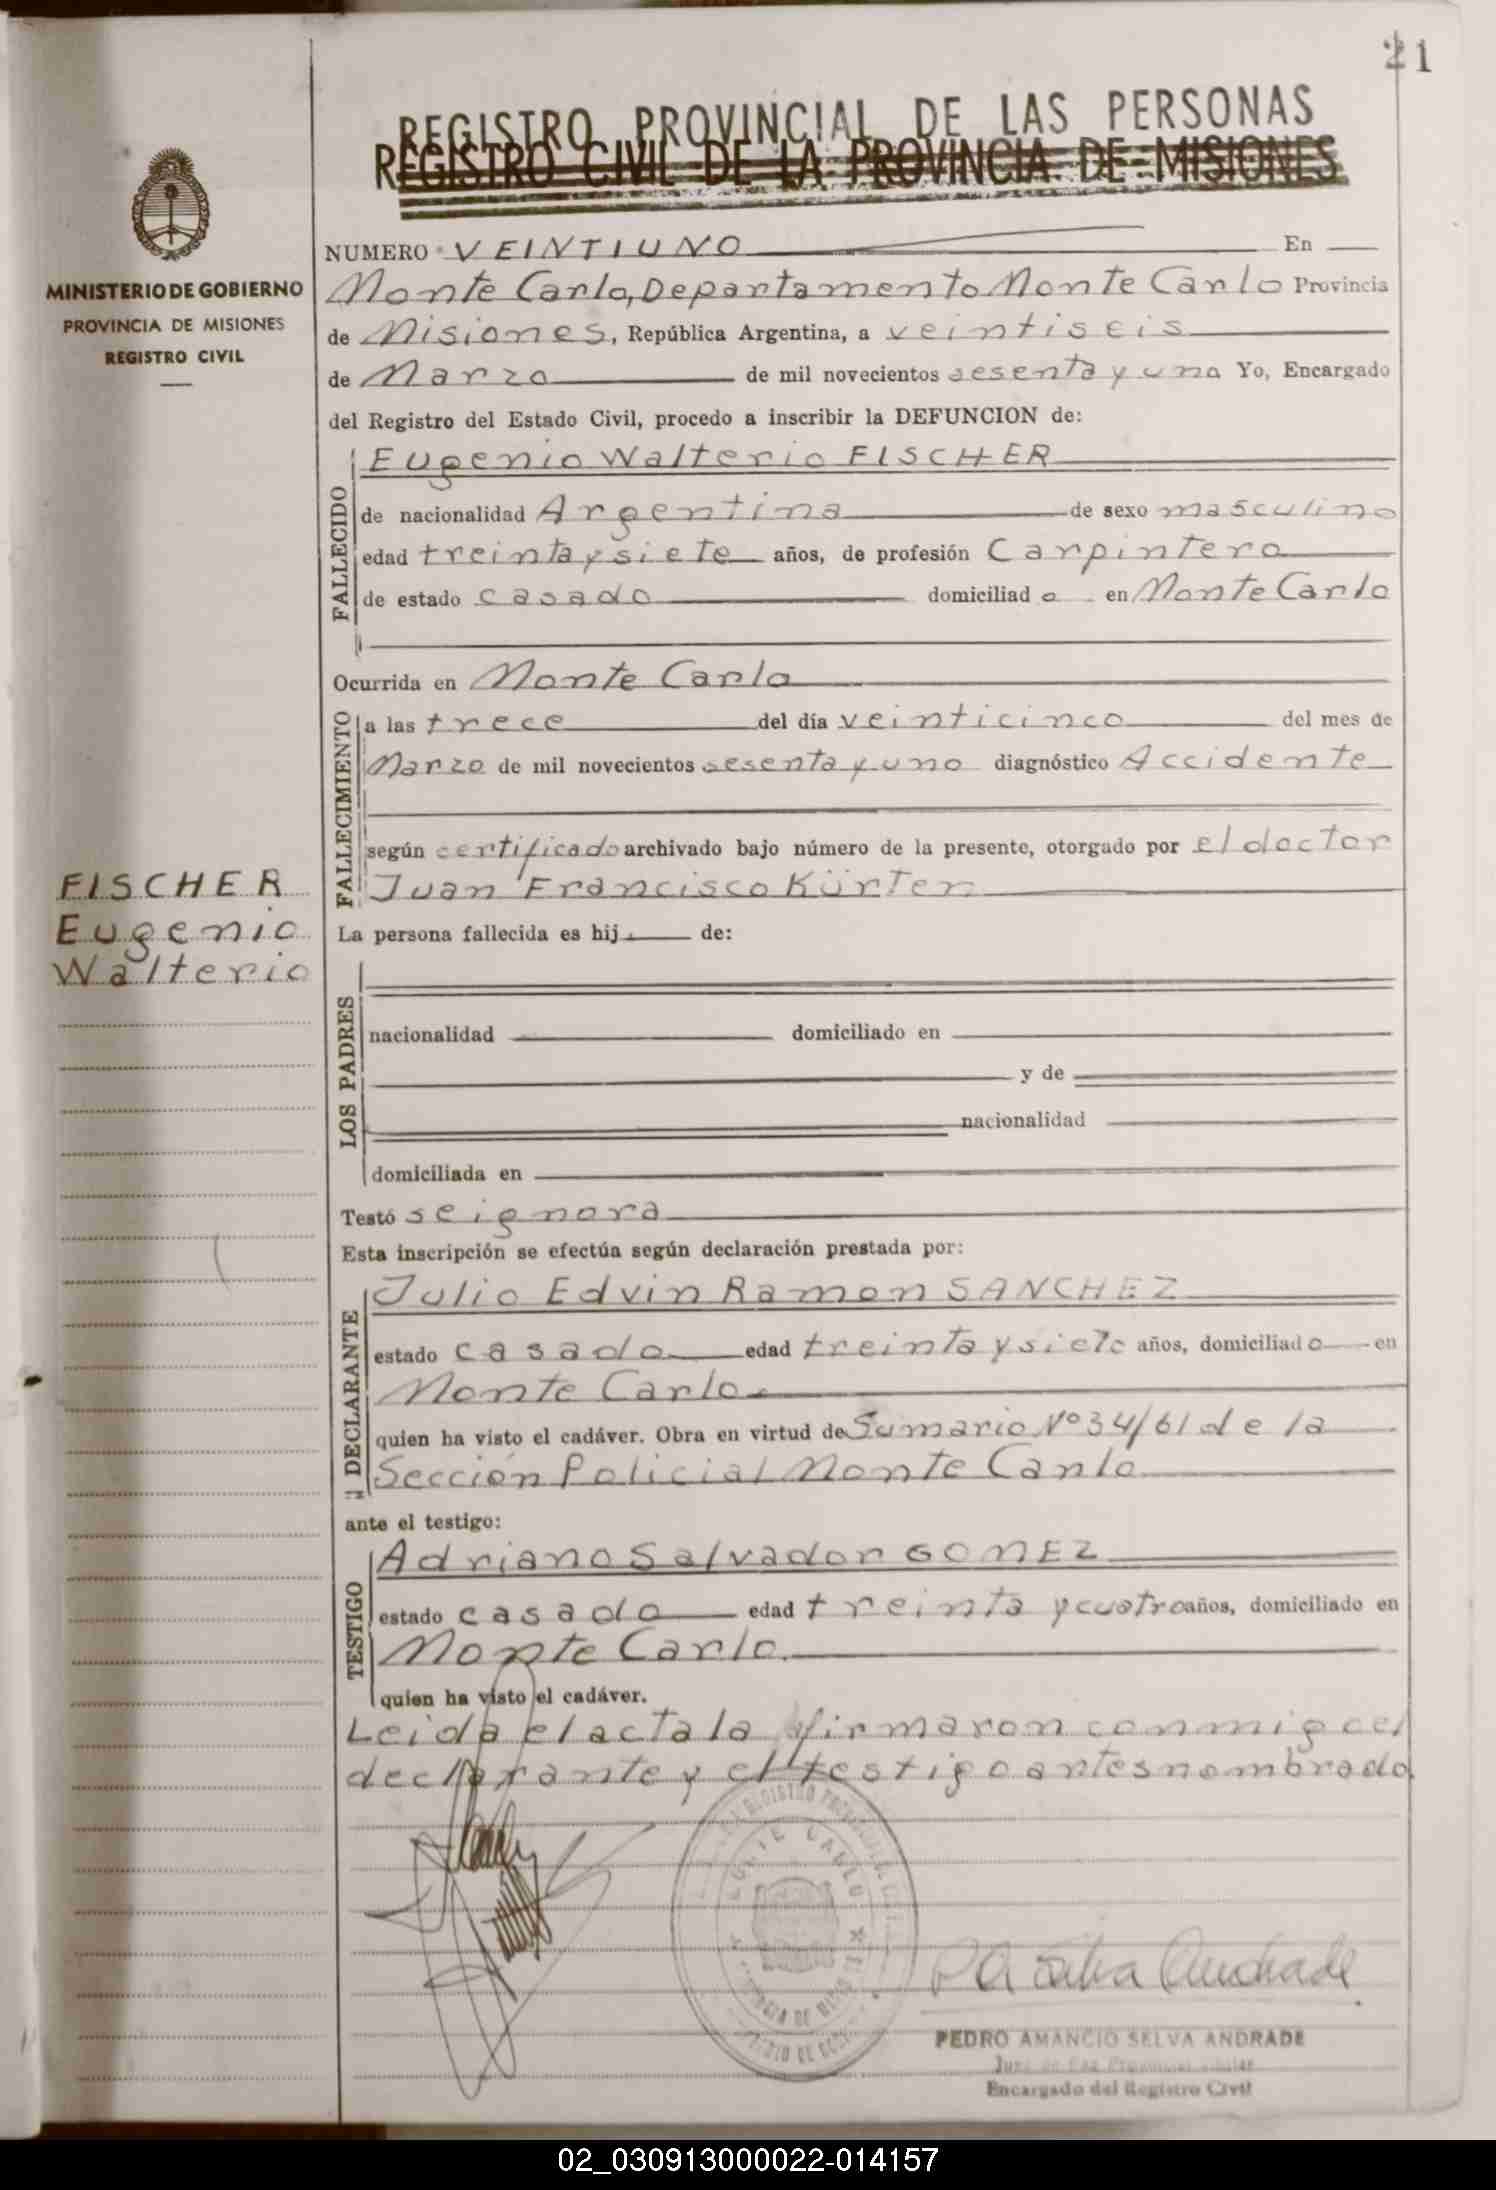 21
REGISTRO PROVINCIAL DE LAS PERSONAS
REGISTRO CIVIL DE LA PROVINCIA DE MISIONES
MINISTERIO DE GOBIERNO
PROVINCIA DE MISIONES
REGISTRO CIVIL
FISCHER
Eugenio
Walterio
NUMERO VEINTIUNO En
Monte Carlo, Departamento Monte Carlo Provincia
de Misiones, República Argentina, a veintiseis
de Marzo de mil novecientos sesenta y uno Yo, Encargado
del Registro del Estado Civil, procedo a inscribir la DEFUNCION de:
FALLECIDO
Eugenio Walterio FISCHER
de nacionalidad Argentina de sexo masculino
edad treinta y siete años, de profesión Carpintero
de estado casado domiciliad o en Monte Carlo
Ocurrida en Monte Carlo
FALLECIMIENTO
a las trece del día veinticinco del mes de
Marzo de mil novecientos sesenta y uno diagnóstico Accidente
según certificado archivado bajo número de la presente, otorgado por el doctor
Juan Francisco Kürten
La persona fallecida es hij de:
LOS PADRES
nacionalidad domiciliado en
y de
nacionalidad
domiciliada en
Testó se ignora
Esta inscripción se efectúa según declaración prestada por:
DECLARANTE
Julio Edvin Ramon SANCHEZ
estado casado edad treinta y siete años, domiciliad o en
Monte Carlo
quien ha visto el cadáver. Obra en virtud de Sumario Nº 34/61 de la
Sección Policial Monte Carlo
ante el testigo:
TESTIGO
Adriano Salvador GOMEZ
estado casado edad treinta y cuatro años, domiciliado en
Monte Carlo.
quien ha visto el cadáver.
Leida el acta la firmaron conmigo el
declarante y el testigo antes nombrado.
MONTE CARLO
PA Selva Andrade
PEDRO AMANCIO SELVA ANDRADE
Juez de Paz Provincial Titular
Encargado del Registro Civil
02_030913000022-014157